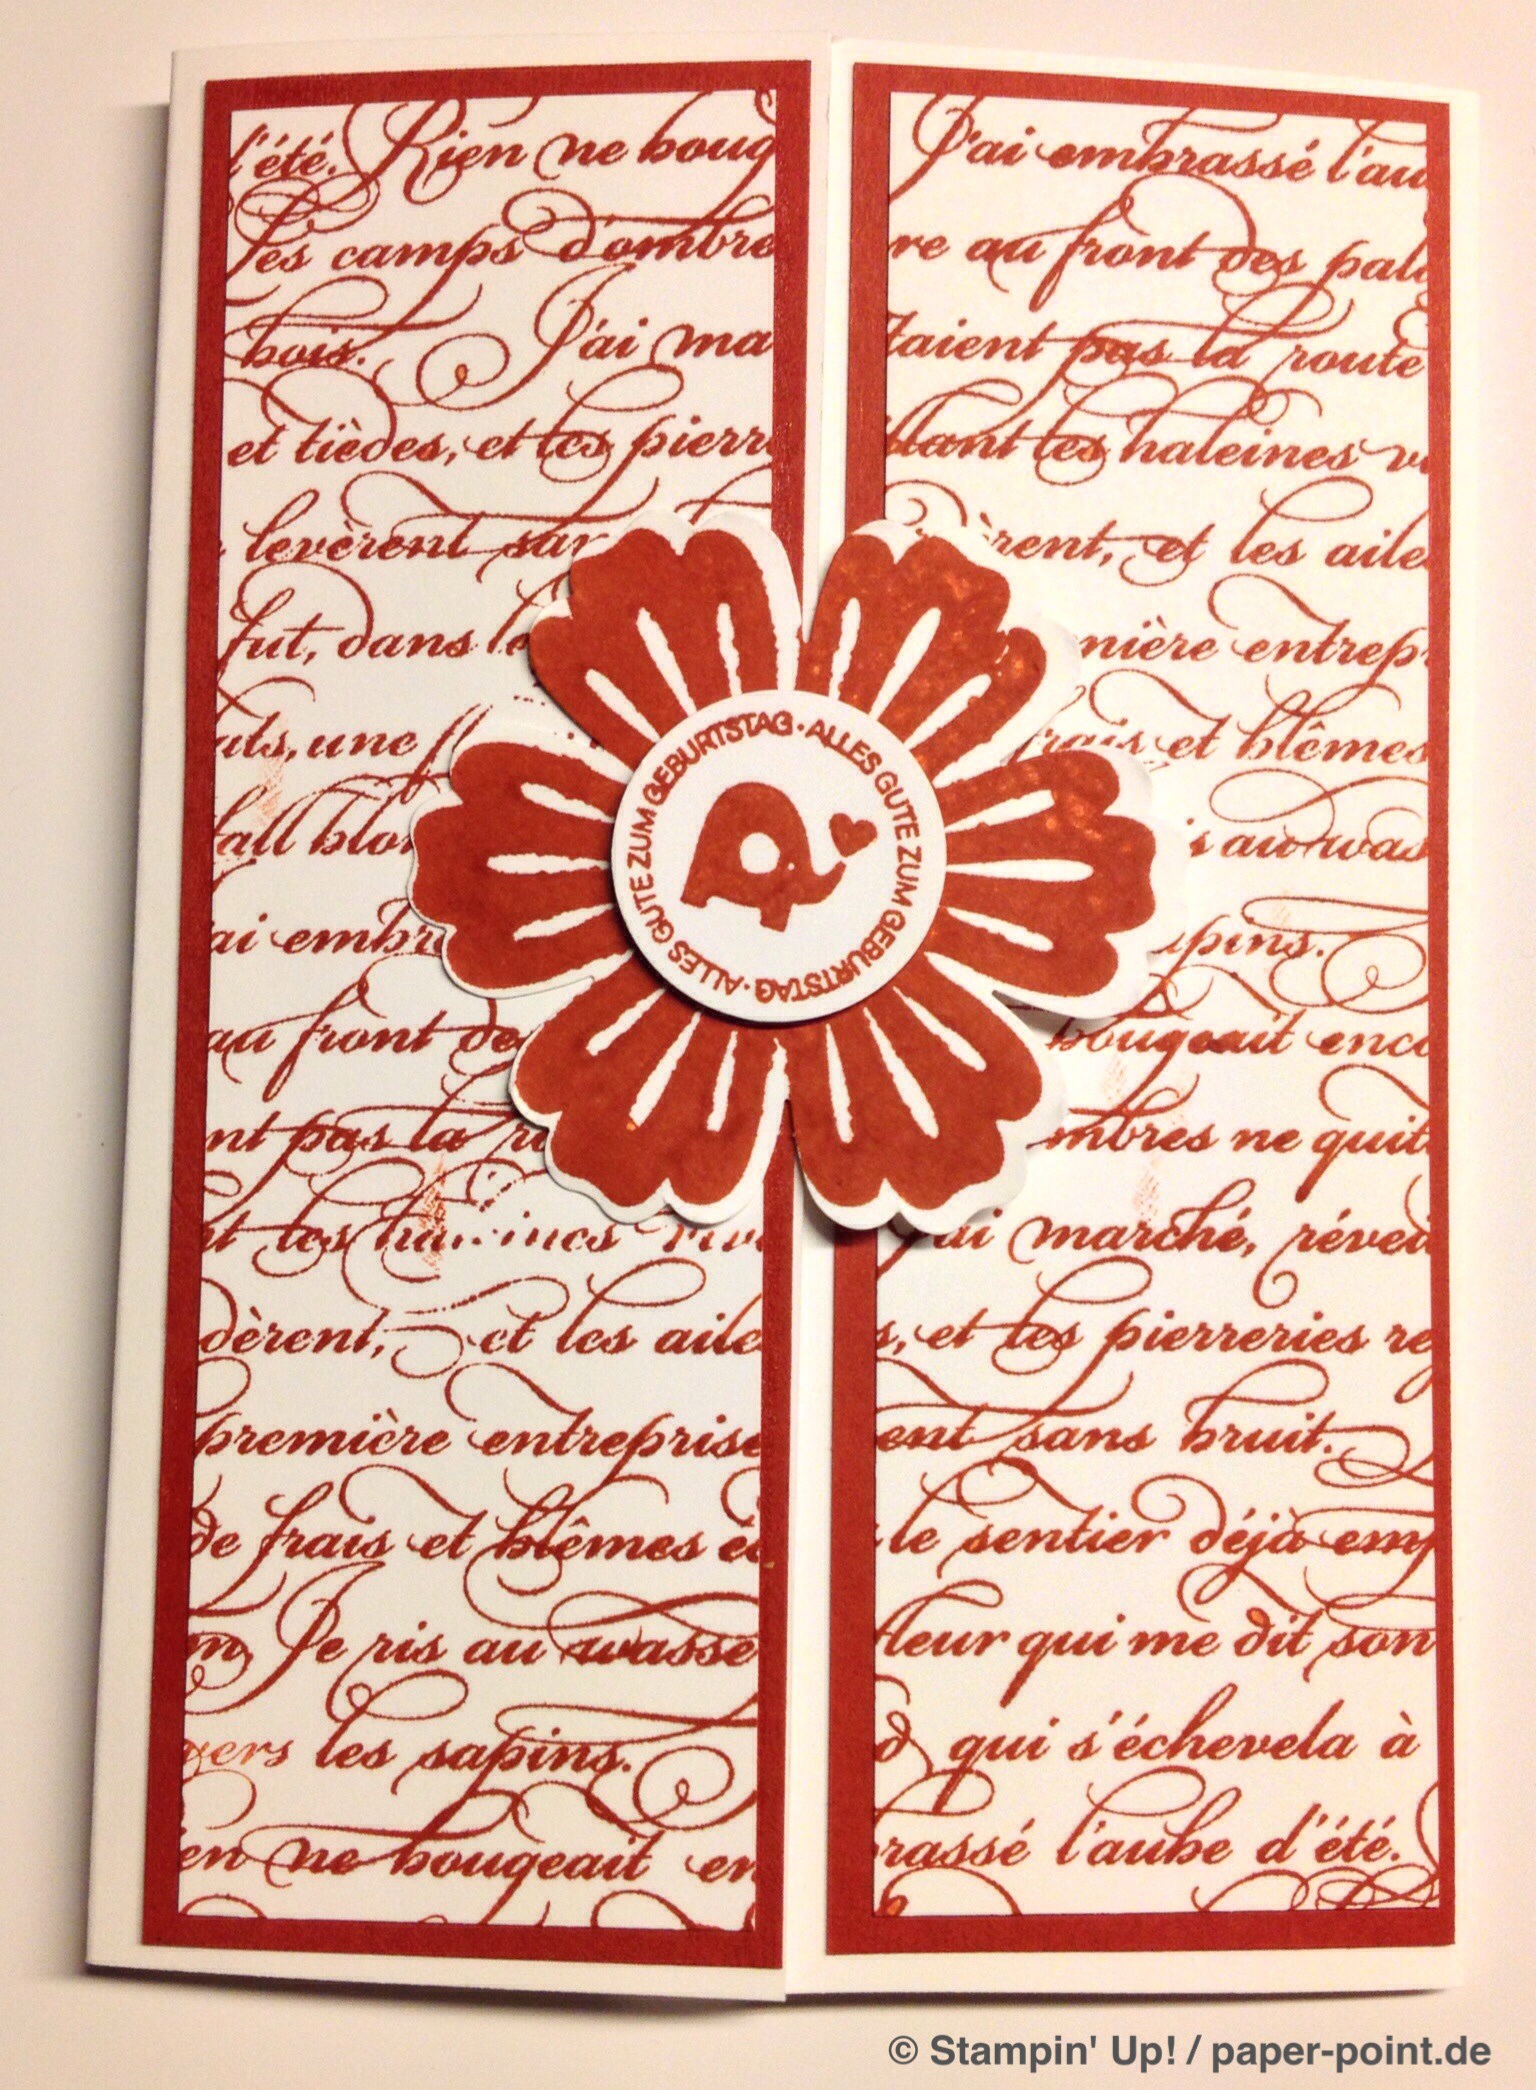 l'été. Rien ne boug
Les camps d'ombre
bois. J'ai ma
et tièdes, et les pierr
levèrent san
fut, dans l
ats, une
all blon
ai embr
au front de
nt pas la r
nt les haleines
dèrent, et les aile
première entreprise
de frais et blêmes éc
m, Je ris au wasse
vers les sapins.
en ne bougeait en
J'ai embrassé l'au
re au front des pala
taient pas la route
llant les haleines v
èrent, et les aile
mière entrepr
frais et blêmes
is au was
apins.
bougeait enco
mbres ne quit
ai marché, réveil
s, et les pierreries re
ent sans bruit.
le sentier déjà emp
fleur qui me dit son
d qui s'échevela à
brassé l'aube d'été.
ALLES GUTE ZUM GEBURTSTAG · ALLES GUTE ZUM GEBURTSTAG ·
© Stampin' Up! / paper-point.de